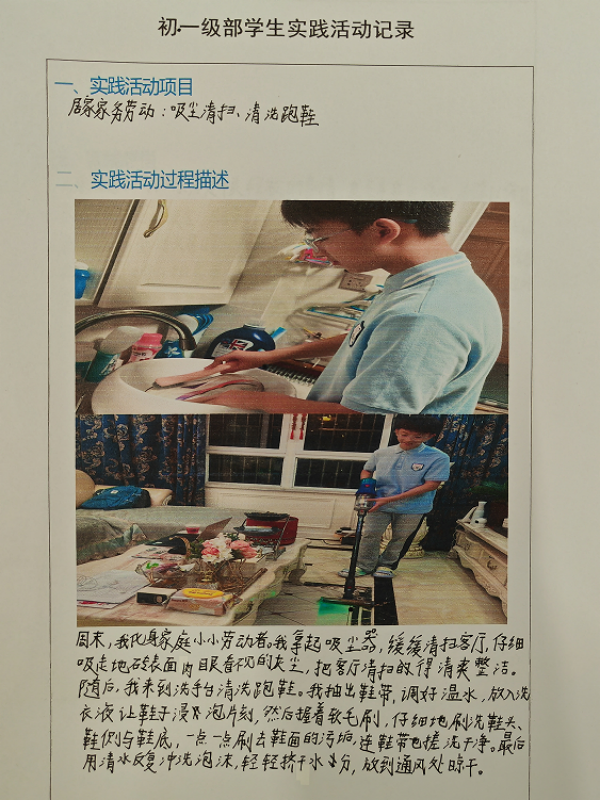 初一级部学生实践活动记录
一、实践活动项目
居家家务劳动：吸尘清扫、清洗跑鞋
二、实践活动过程描述
周末，我化身家庭小小劳动者。我拿起吸尘器，缓缓清扫客厅，仔细
吸走地砖表面肉眼看不见的灰尘，把客厅清扫的得清爽整洁。
随后，我来到洗手台清洗跑鞋。我抽出鞋带，调好温水，放入洗
衣液让鞋子浸泡片刻，然后握着软毛刷，仔细地刷洗鞋头、
鞋侧与鞋底，一点一点刷去鞋面的污垢，连鞋带也搓洗干净。最后
用清水反复冲洗泡沫，轻轻挤干水分，放到通风处晾干。